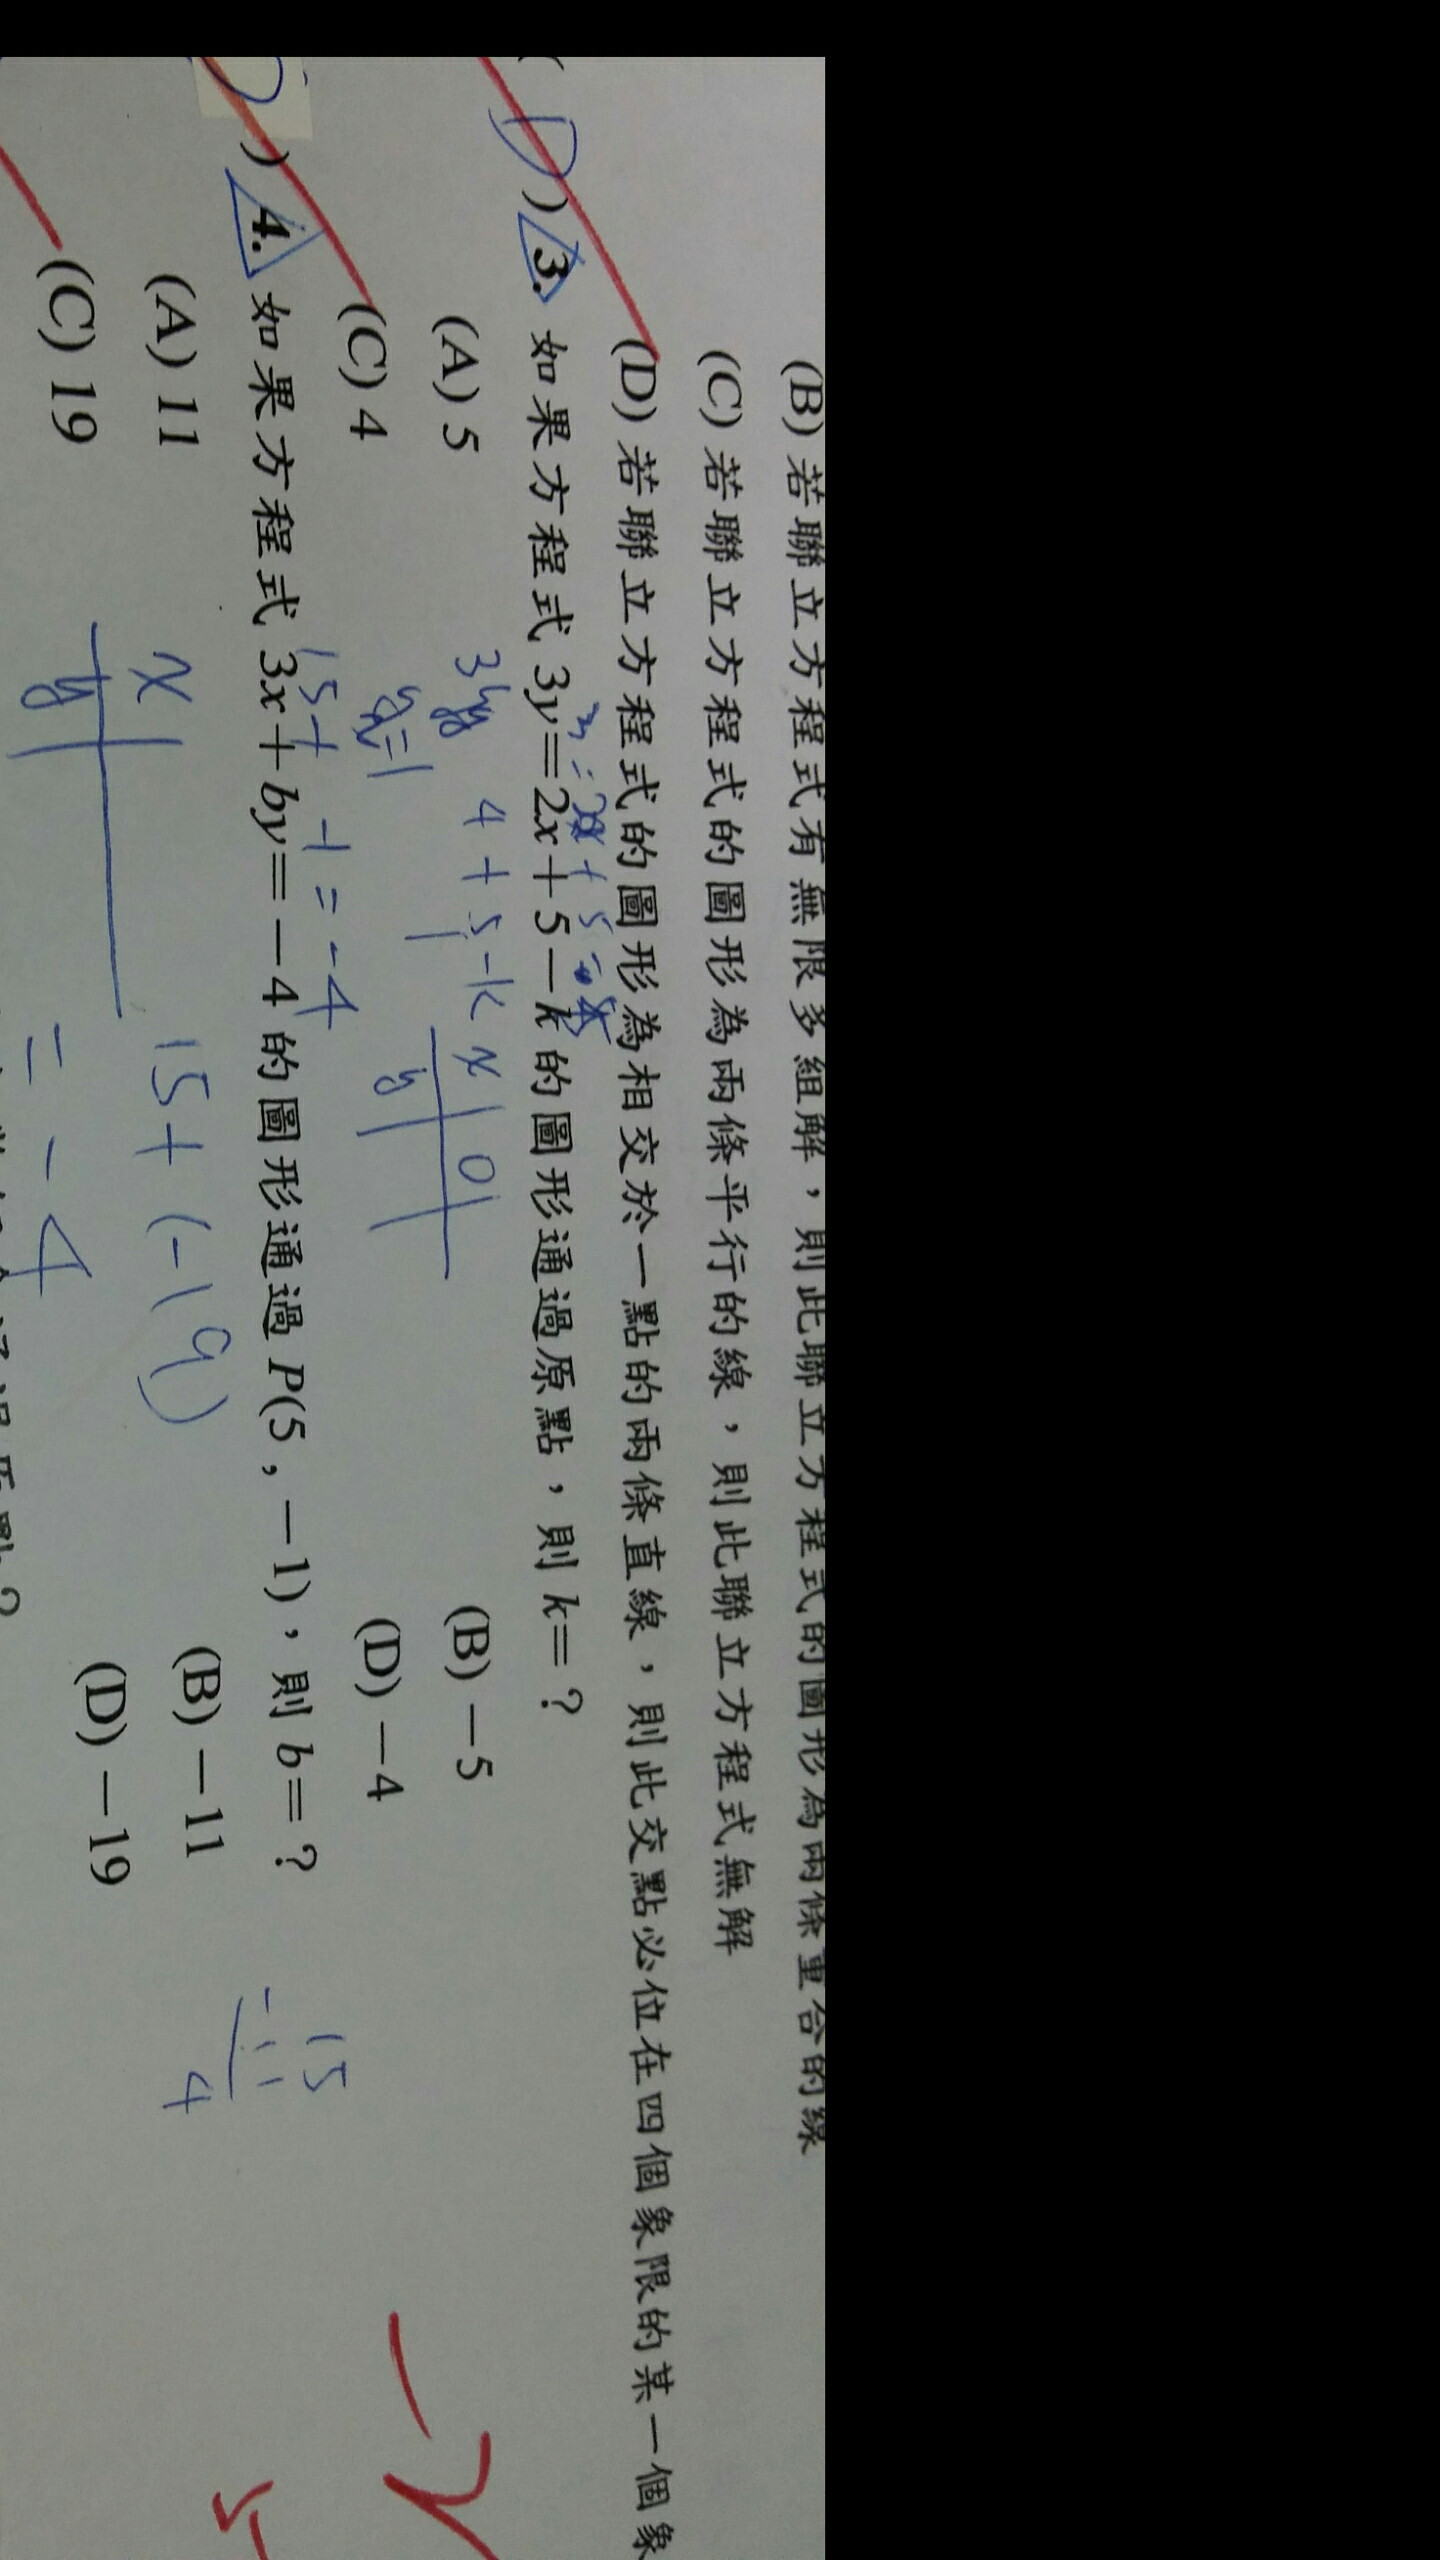 (B) 若聯立方程式有無限多組解，則此聯立方程式的圖形為兩條重合的線
(C) 若聯立方程式的圖形為兩條平行的線，則此聯立方程式無解
(D) 若聯立方程式的圖形為相交於一點的兩條直線，則此交點必位在四個象限的某一個象
( D ) 3. 如果方程式 3y=2x+5−k 的圖形通過原點，則 k=？
(A) 5 (B) −5
4 + 5 - k
x 0
y
(C) 4 (D) −4
15 + -1 = -4
) 4. 如果方程式 3x+by=−4 的圖形通過 P(5，−1)，則 b=？
15
-11
4
(A) 11 (B) −11
x
y
15 + (-19)
= -4
(C) 19 (D) −19